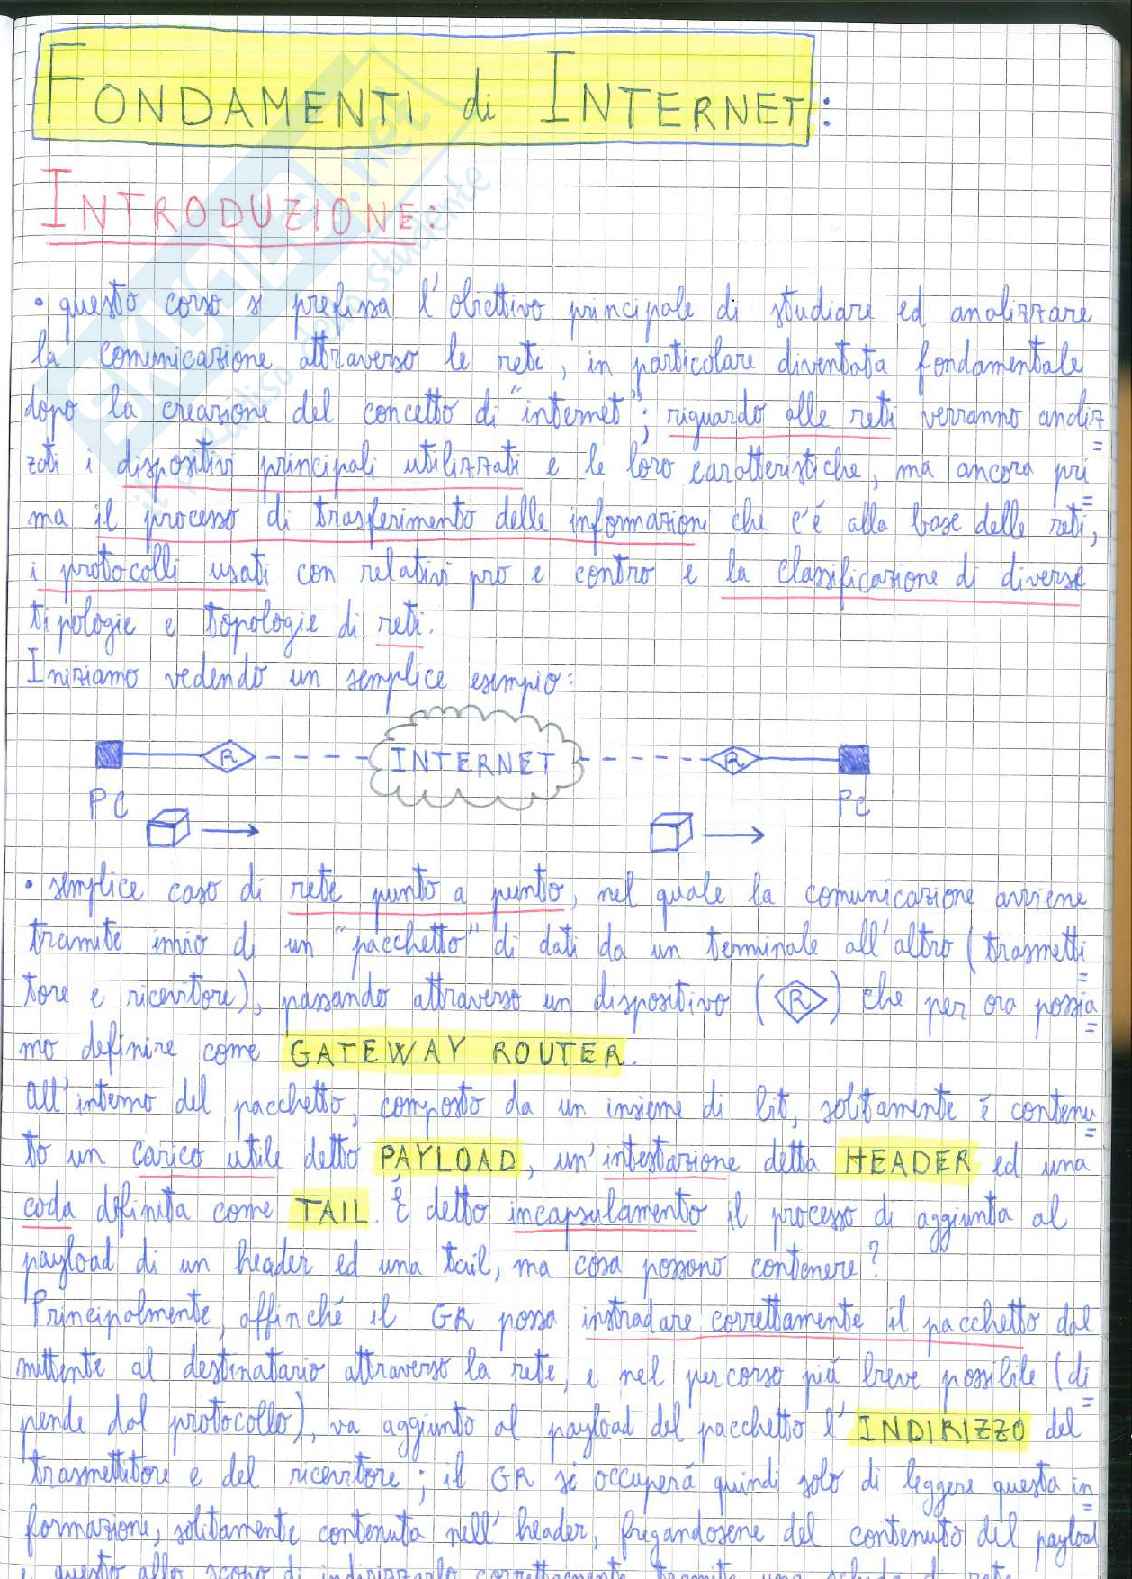 FONDAMENTI di INTERNET:
INTRODUZIONE:
• questo corso si prefissa l'obiettivo principale di studiare ed analizzare
la comunicazione attraverso le reti, in particolare diventata fondamentale
dopo la creazione del concetto di "internet"; riguardo alle reti verranno analiz=
zati i dispositivi principali utilizzati e le loro caratteristiche, ma ancora pri=
ma il processo di trasferimento delle informazioni che c'é alla base delle reti,
i protocolli usati con relativi pro e contro e la classificazione di diverse
tipologie e topologie di reti.
Iniziamo vedendo un semplice esempio:
R INTERNET R
PC PC
• semplice caso di rete punto a punto, nel quale la comunicazione avviene
tramite invio di un "pacchetto" di dati da un terminale all'altro (trasmetti=
tore e ricevitore), passando attraverso un dispositivo (R) che per ora possia=
mo definire come GATEWAY ROUTER.
All'interno del pacchetto, composto da un insieme di bit, solitamente é contenu=
to un carico utile detto PAYLOAD, un'intestazione detta HEADER ed una
coda definita come TAIL. É detto incapsulamento il processo di aggiunta al
payload di un header ed una tail, ma cosa possono contenere?
Principalmente, affinché il GR possa instradare correttamente il pacchetto dal
mittente al destinatario attraverso la rete, e nel percorso piú breve possibile (di=
pende dal protocollo), va aggiunto al payload del pacchetto l'INDIRIZZO del
trasmettitore e del ricevitore; il GR si occuperá quindi solo di leggere questa in=
formazione, solitamente contenuta nell'header, fregandosene del contenuto del payload
e questo allo scopo di indirizzarlo correttamente tramite una scheda di rete